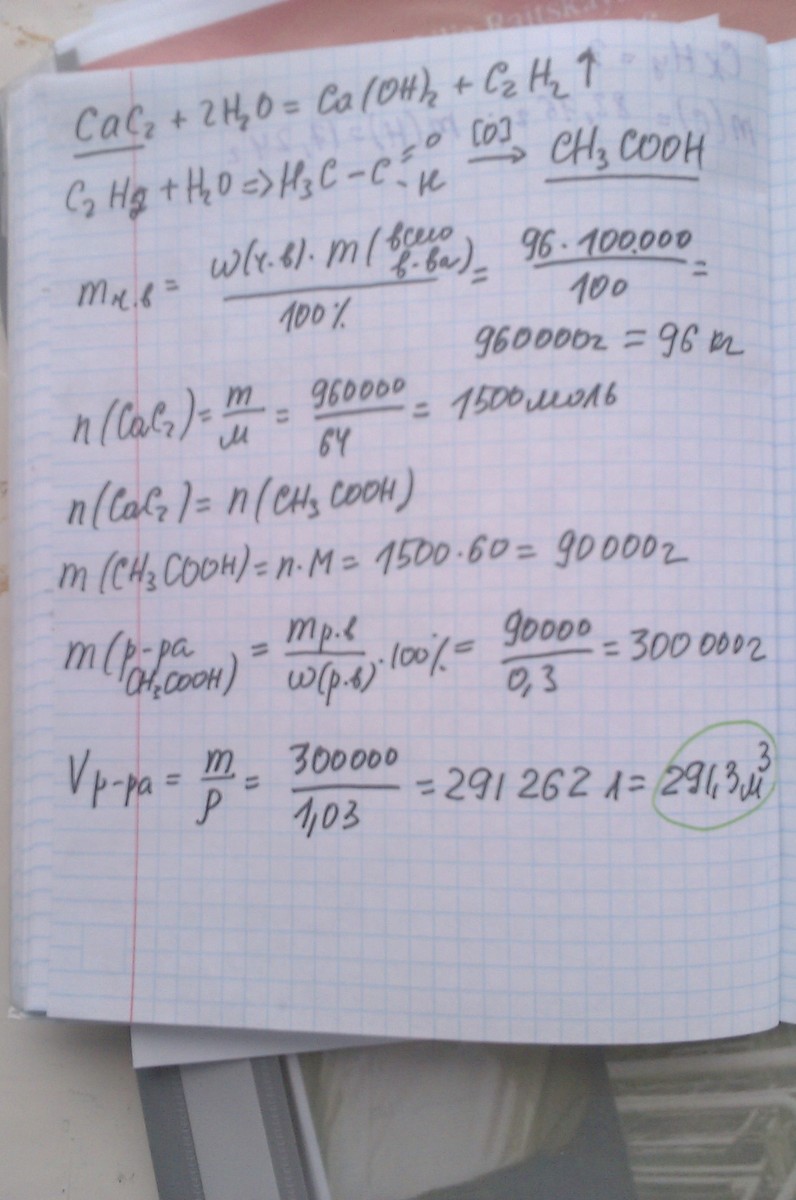 Raitskaya
CaC₂ + 2H₂O = Ca(OH)₂ + C₂H₂↑
C₂H₂ + H₂O => H₃C - C = O - H [O] → CH₃COOH
m ч.в = w(ч.в) · m (всего в-ва) / 100% = 96 · 100.000 / 100 =
960000г = 96 кг
n(CaC₂) = m / M = 960000 / 64 = 1500 моль
n(CaC₂) = n(CH₃COOH)
m(CH₃COOH) = n·M = 1500·60 = 90000г
m(р-ра CH₃COOH) = m р.в / w(р.в) · 100% = 90000 / 0,3 = 300 000г
V р-ра = m / ρ = 300000 / 1,03 = 291 262 л = 291,3м³